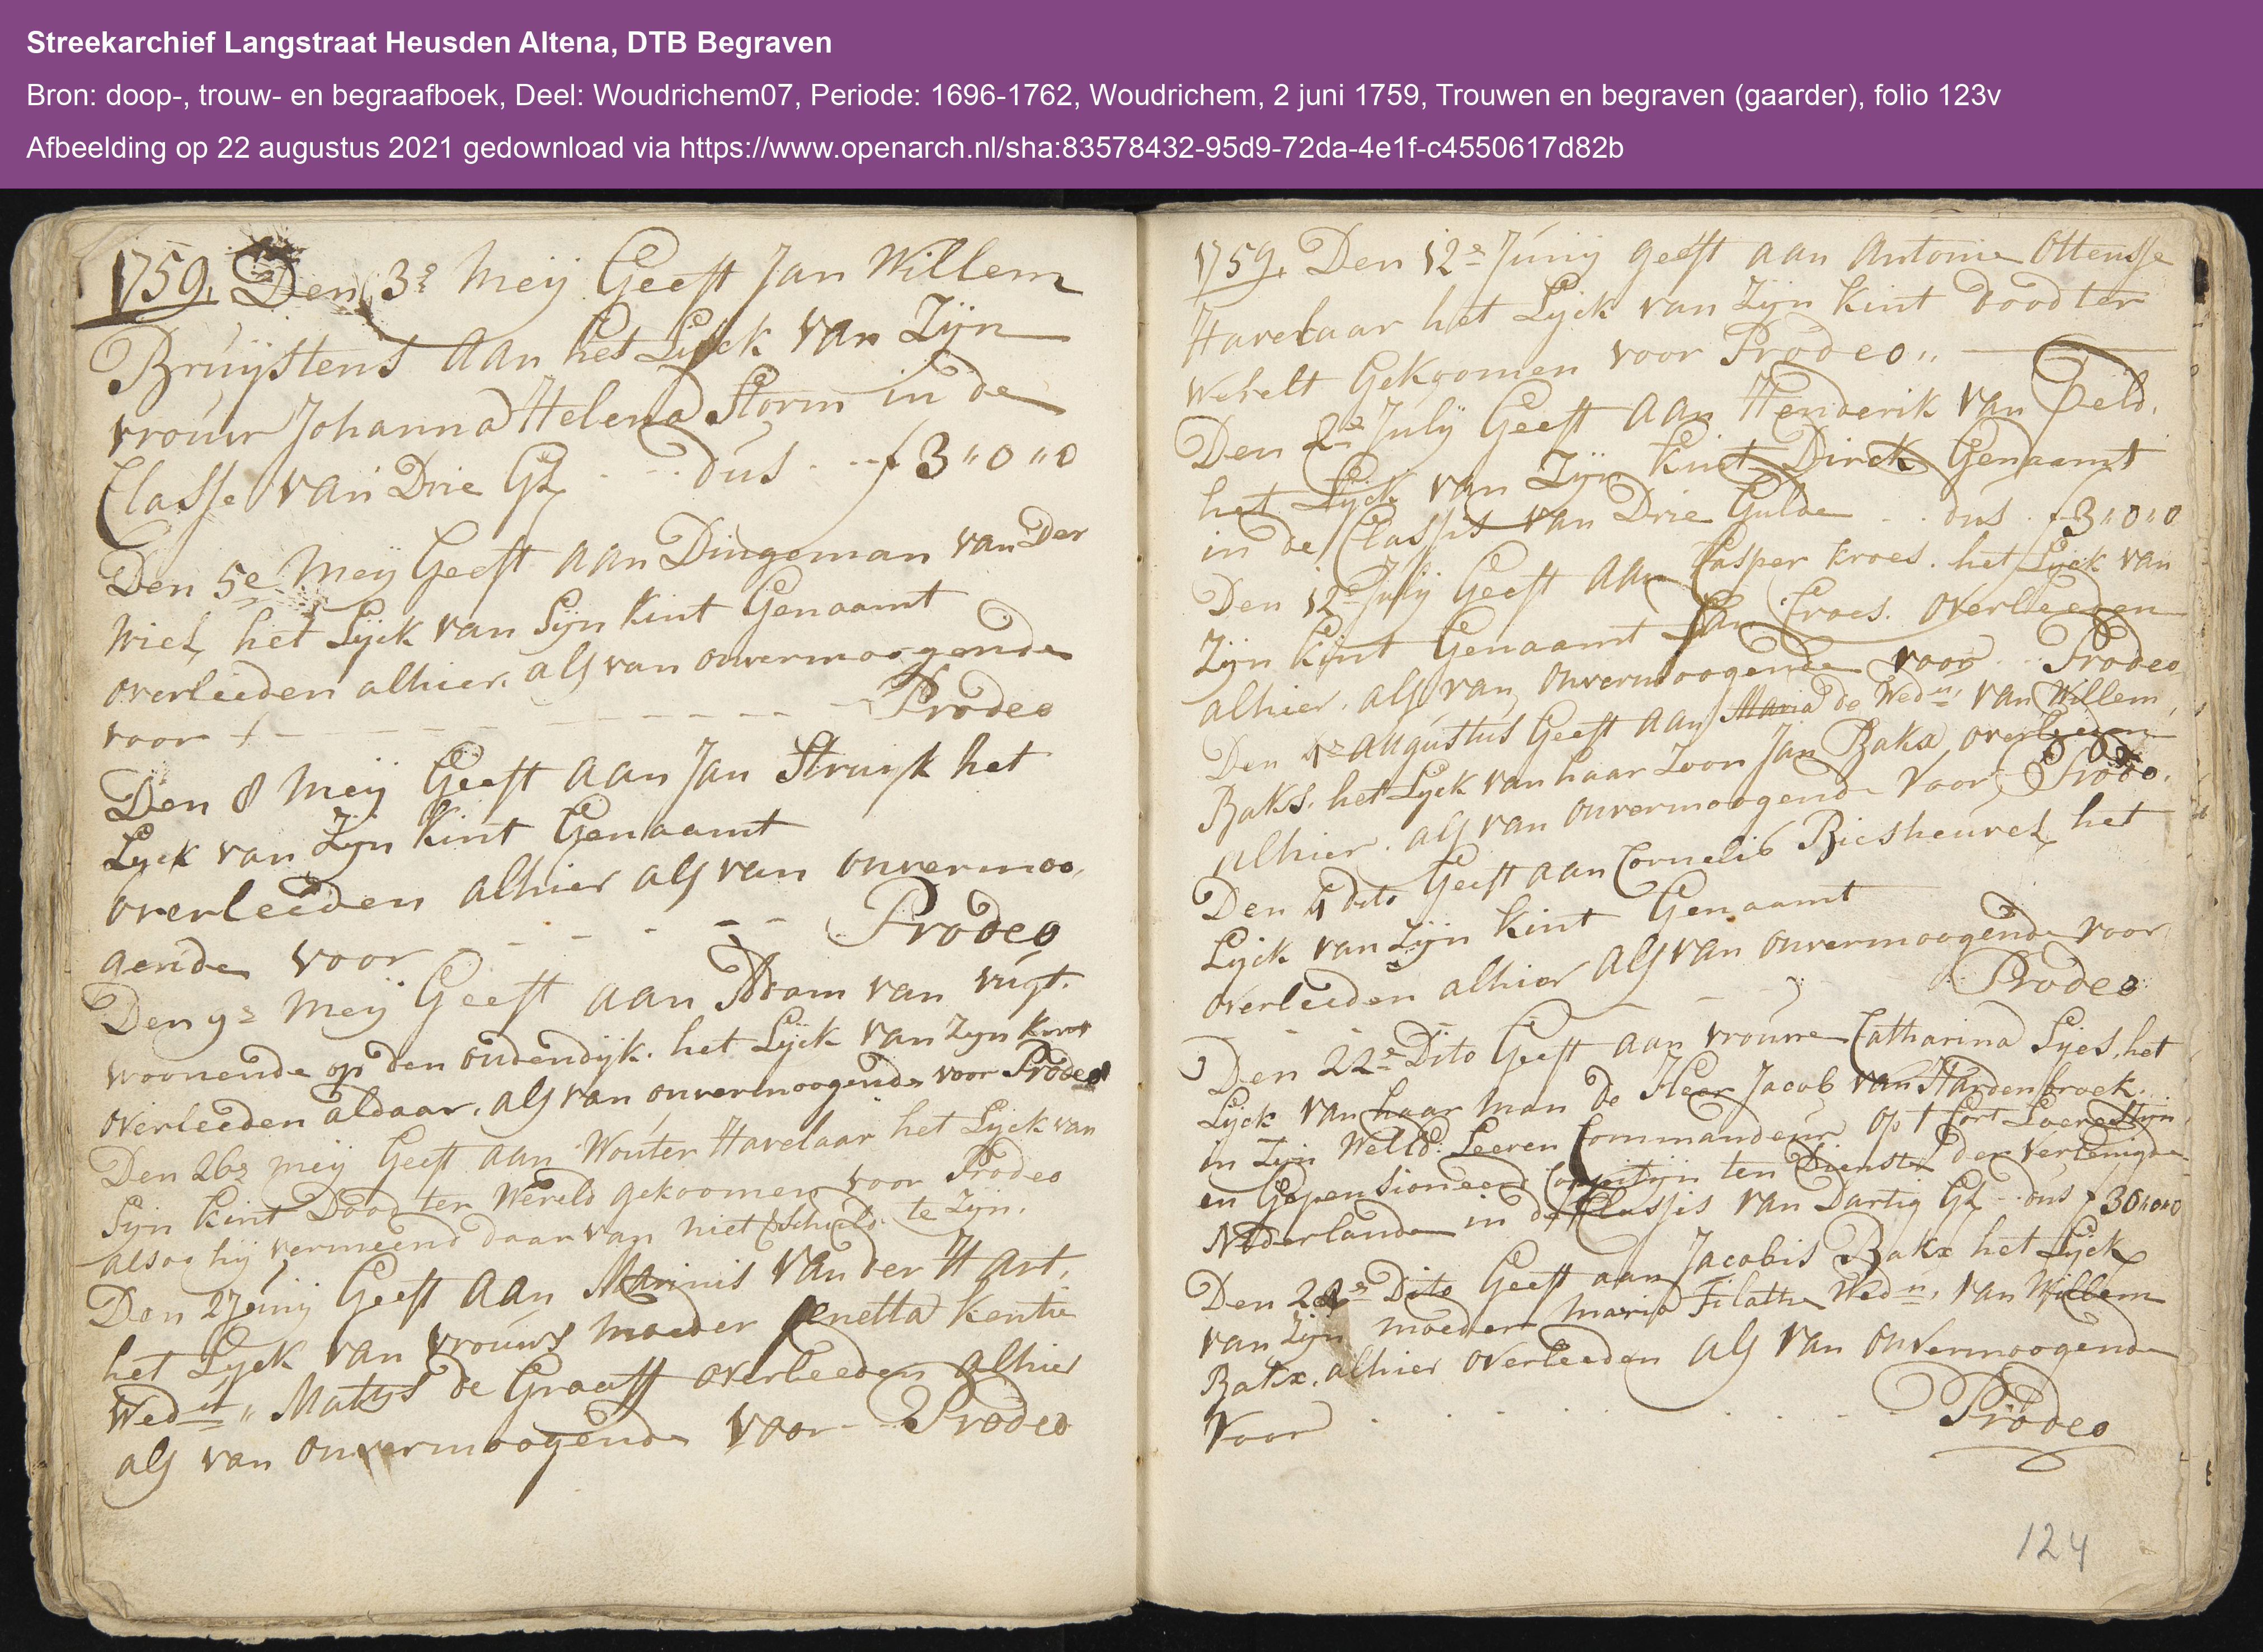 Streekarchief Langstraat Heusden Altena, DTB Begraven
Bron: doop-, trouw- en begraafboek, Deel: Woudrichem07, Periode: 1696-1762, Woudrichem, 2 juni 1759, Trouwen en begraven (gaarder), folio 123v
Afbeelding op 22 augustus 2021 gedownload via https://www.openarch.nl/sha:83578432-95d9-72da-4e1f-c4550617d82b
1759. Den 3e Meij Geeft Jan Willem
Bruijstens aan het Lijck van Zijn
vrouw Johanna Helena Storm in de
Classe van Drie Gl dus f 3"0"0
Den 5e Meij Geeft aan Dingeman van Der
Wiel het Lijck van Sijn kint Genaamt
overleeden alhier, als van onvermoogende
voor Prodeo
Den 8 Meij Geeft aan Jan Struijk het
Lyck van Zijn kint Genaamt
overleeden alhier als van onvermoo,
gende voor Prodeo
Den 9e Meij Geeft aan Adam van vugt.
woonende op den oudendijk. het Lijck van Zijn kint
overleeden aldaar. als van onvermoogende voor Prodeo
Den 26e meij Geeft aan Wouter Havelaar het Lyck van
Sijn kint Dood ter Wereld gekoomen voor Prodeo
alsoo hij vermeend daar van niet schuld te Zijn.
Den 2 Junij Geeft aan Marinis van der Hart,
het Lyck van vrouws moeder Jenetta Kentie
Wedue Matijs de Graaff overleeden alhier
als van onvermoogende voor Prodeo
1759. Den 12e Junij geeft aan Antonie Ottensse
Havelaar het Lyck van Zijn kint dood ter
Werelt Gekoomen voor Prodeo..
Den 2e July Geeft aan Henderik van Deld.
het Lijck van Zijn Kint Dirck Genaamt
in de Classis van Drie Gulde dus f 3"0"0
Den 12e July Geeft aan Casper kroes. het Lyck van
Zijn Kint Genaamt Jan Croes. overleeden
alhier. als van onvermoogende voor Prodeo
Den 4e augustus Geeft aan Maria de Wedn. van Willem
Baks. het Lyck van haar Zoon Jan Bakx overleeden
alhier. als van onvermoogende voor Prodeo.
Den 4 dito Geeft aan Cornelis Biesheuvel het
Lyck van Zijn kint Genaamt
overleeden alhier als van onvermoogende voor
Prodeo
Den 22e Dito Geeft aan vrouwe Catharina Lijes, het
Lyck van haar man de Heer Jacob van Hardenbroek.
in Zijn Leeren Commandeur op 't Fort Loevestijn
en Gepensioneerd Cappitijn ten Dienste der Verlenigde
Nederlanden in de Classis van Dartig Gl dus f 30"0"0
Den Dito Geeft aan Jacobis Bakx het Lyck
van Zijn moeder maria Filatte Wedn. van Willem
Bakx. alhier overleeden als van onvermoogende
voor Prodeo
124